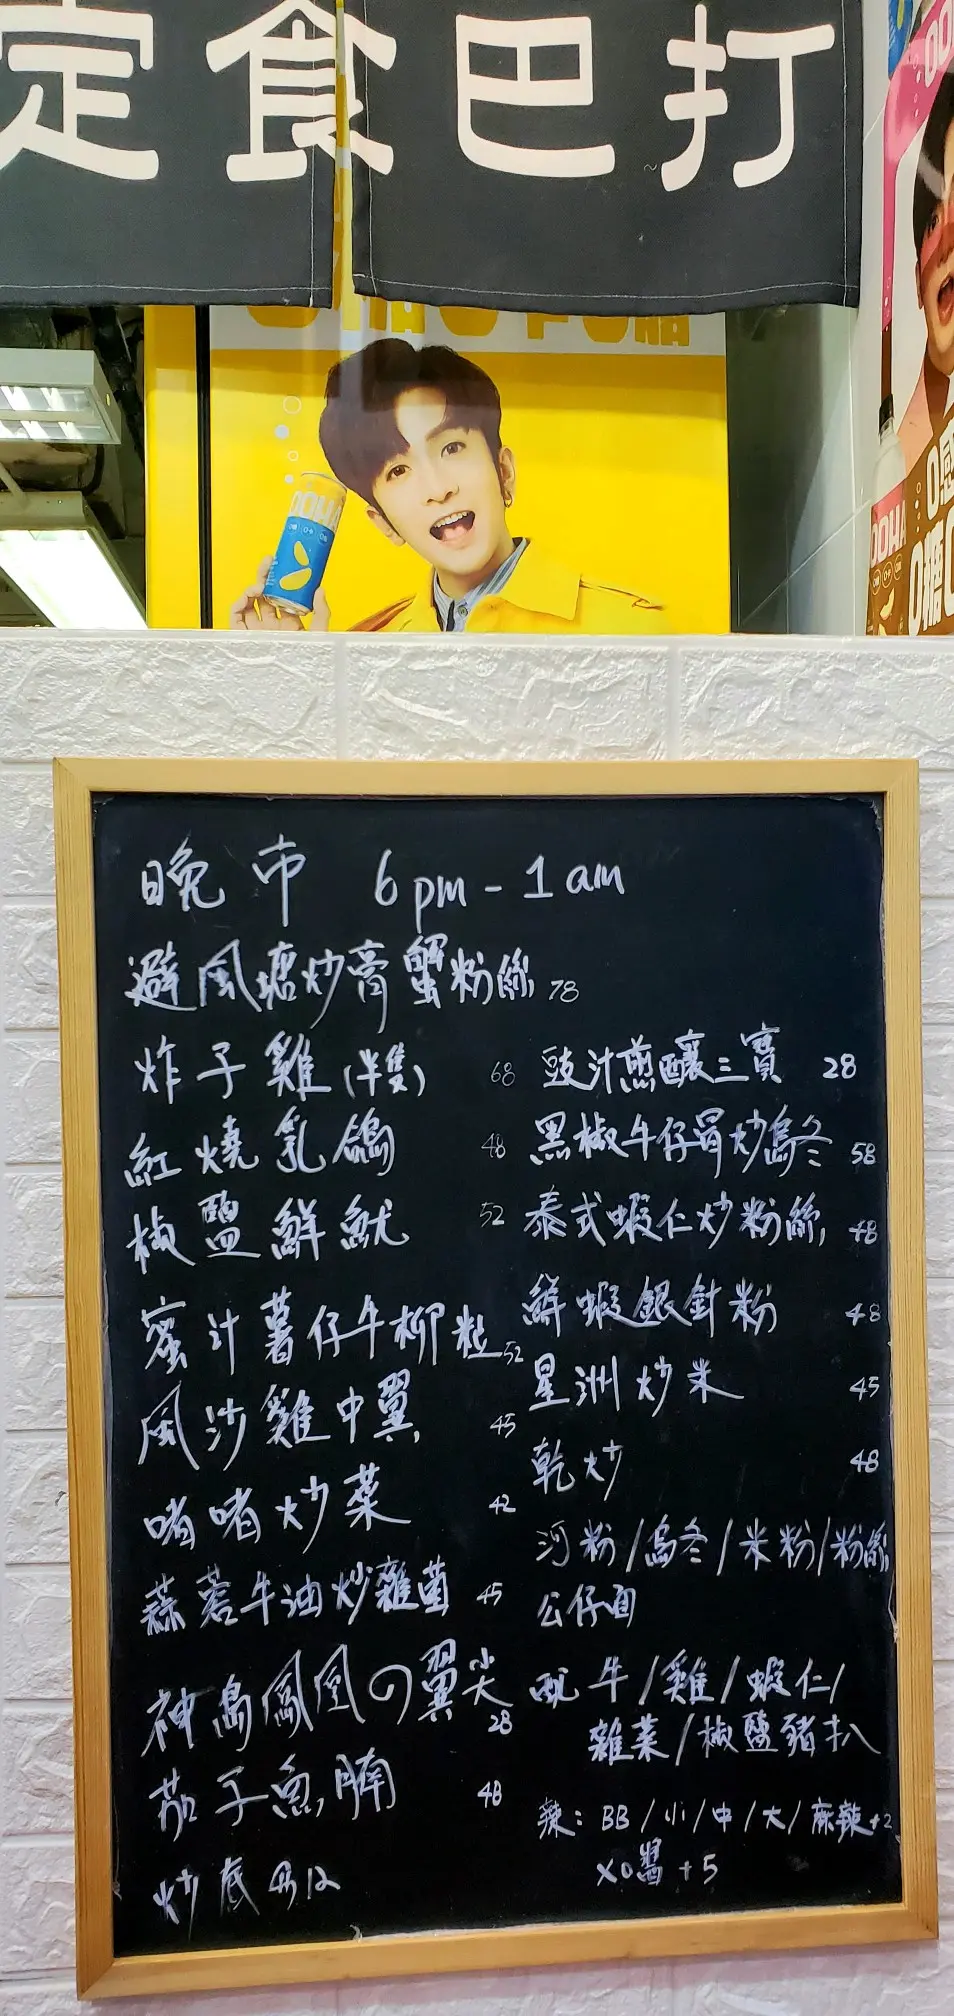 定食巴打
OOHA
OOHA
0感
0糖0
晚市 6pm-1am
避風塘炒膏蟹粉絲 78
炸子雞(半隻) 68
紅燒乳鴿 48
椒鹽鮮魷 52
蜜汁薯仔牛柳粒 52
風沙雞中翼 45
啫啫炒菜 42
蒜蓉牛油炒雜菌 45
神島鳳凰の翼尖 28
茄子魚腩 48
炒底另12
豉汁煎釀三寶 28
黑椒牛仔骨炒烏冬 58
泰式蝦仁炒粉絲 48
鮮蝦銀針粉 48
星洲炒米 45
乾炒 48
河粉/烏冬/米粉/粉絲
公仔面
配 牛/雞/蝦仁/
雜菜/椒鹽豬扒
辣: BB/小/中/大/麻辣+2
XO醬+5